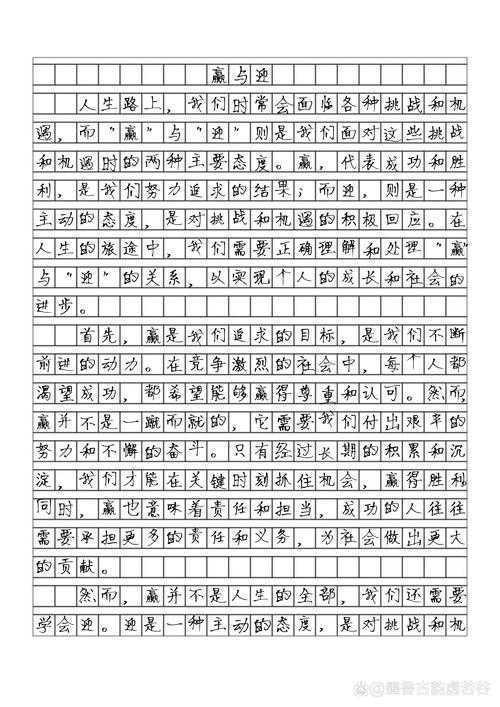 赢与迎
人生路上，我们时常会面临各种挑战和机
遇，而“赢”与“迎”则是我们面对这些挑战
和机遇时的两种主要态度。赢，代表成功和胜
利，是我们努力追求的结果；而迎，则是一种
主动的态度，是对挑战和机遇的积极回应。在
人生的旅途中，我们需要正确理解和处理“赢”
与“迎”的关系，以实现个人的成长和社会的
进步。
首先，赢是我们追求的目标，是我们不断
前进的动力。在竞争激烈的社会中，每个人都
渴望成功，都希望能够赢得尊重和认可。然而，
赢并不是一蹴而就的，它需要我们付出艰辛的
努力和不懈的奋斗。只有经过长期的积累和沉
淀，我们才能在关键时刻抓住机会，赢得胜利
同时，赢也意味着责任和担当，成功的人往往
需要承担更多的责任和义务，为社会做出更大
的贡献。
然而，赢并不是人生的全部，我们还需要
学会迎。迎是一种主动的态度，是对挑战和机